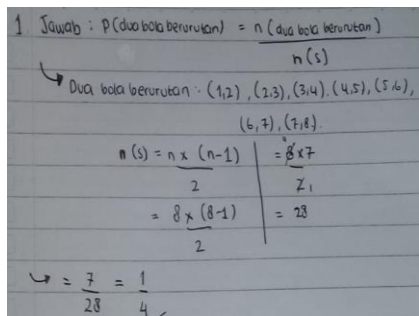 1. Jawab : P(dua bola berurutan) = n(dua bola berurutan)
n(s)
↳ Dua bola berurutan : (1,2), (2,3), (3,4), (4,5), (5,6),
(6,7), (7,8).
n(s) = n x (n-1) / 2 | = 8 x 7 / 2
= 8 x (8-1) / 2 | = 28
↳ = 7/28 = 1/4